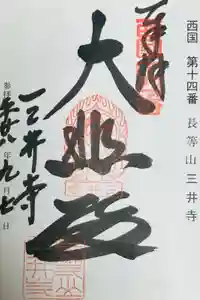 西国 第十四番 長等山 三井寺
奉拝
大悲殿
三井寺
参拝 平成八年九月七日